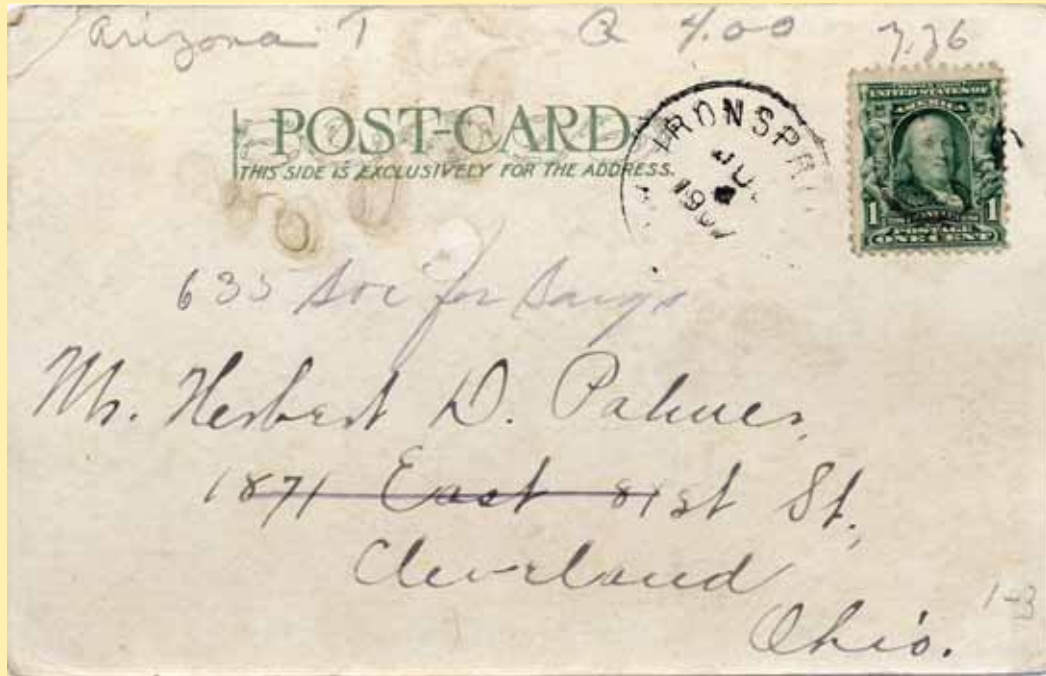 Arizona T 4.00 7.36
POST-CARD
THIS SIDE IS EXCLUSIVELY FOR THE ADDRESS.
IRONSPR
JU
190
UNITED STATES OF
AMERICA
1 1
POSTAGE
ONE CENT
633 Soc for Savgs
Mr. Herbert D. Palmer,
1871 East 81st St.,
Cleveland
Ohio.
1-3